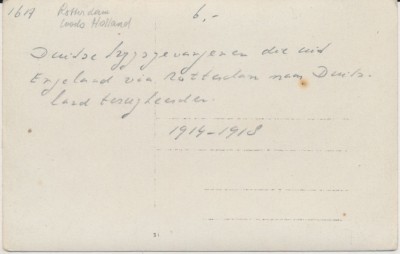 1619 Rotterdam 6,-
Leids Holland
Duitse krijgsgevangenen die uit
Engeland via Rotterdam naar Duits-
land terugkeerden.
1914-1918